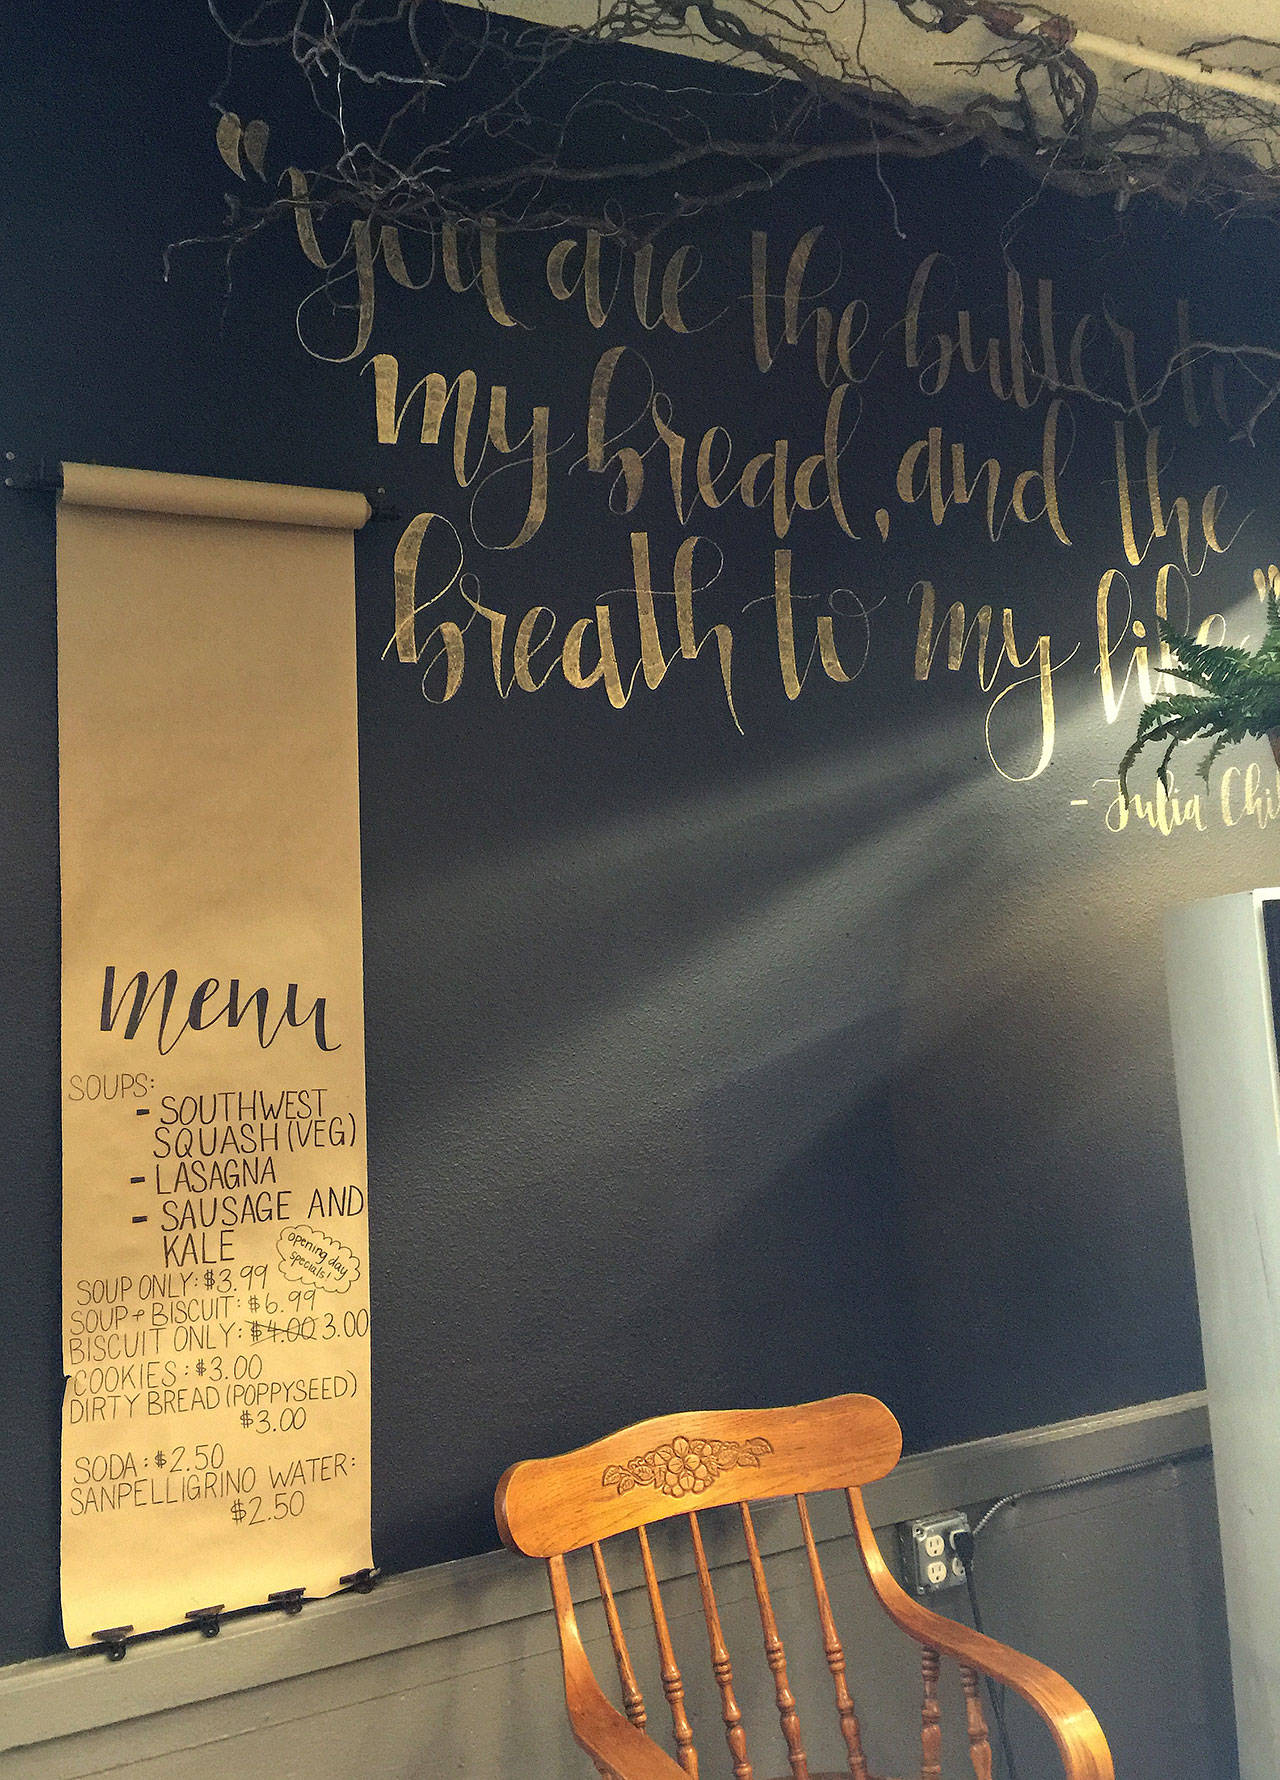 "You are the butter to
my bread, and the
breath to my life"
- Julia Chi
Menu
SOUPS:
- SOUTHWEST
SQUASH (VEG)
- LASAGNA
- SAUSAGE AND
KALE
opening day
specials!
SOUP ONLY: $3.99
SOUP + BISCUIT: $6.99
BISCUIT ONLY: $4.00 3.00
COOKIES: $3.00
DIRTY BREAD (POPPYSEED)
$3.00
SODA: $2.50
SANPELLIGRINO WATER:
$2.50